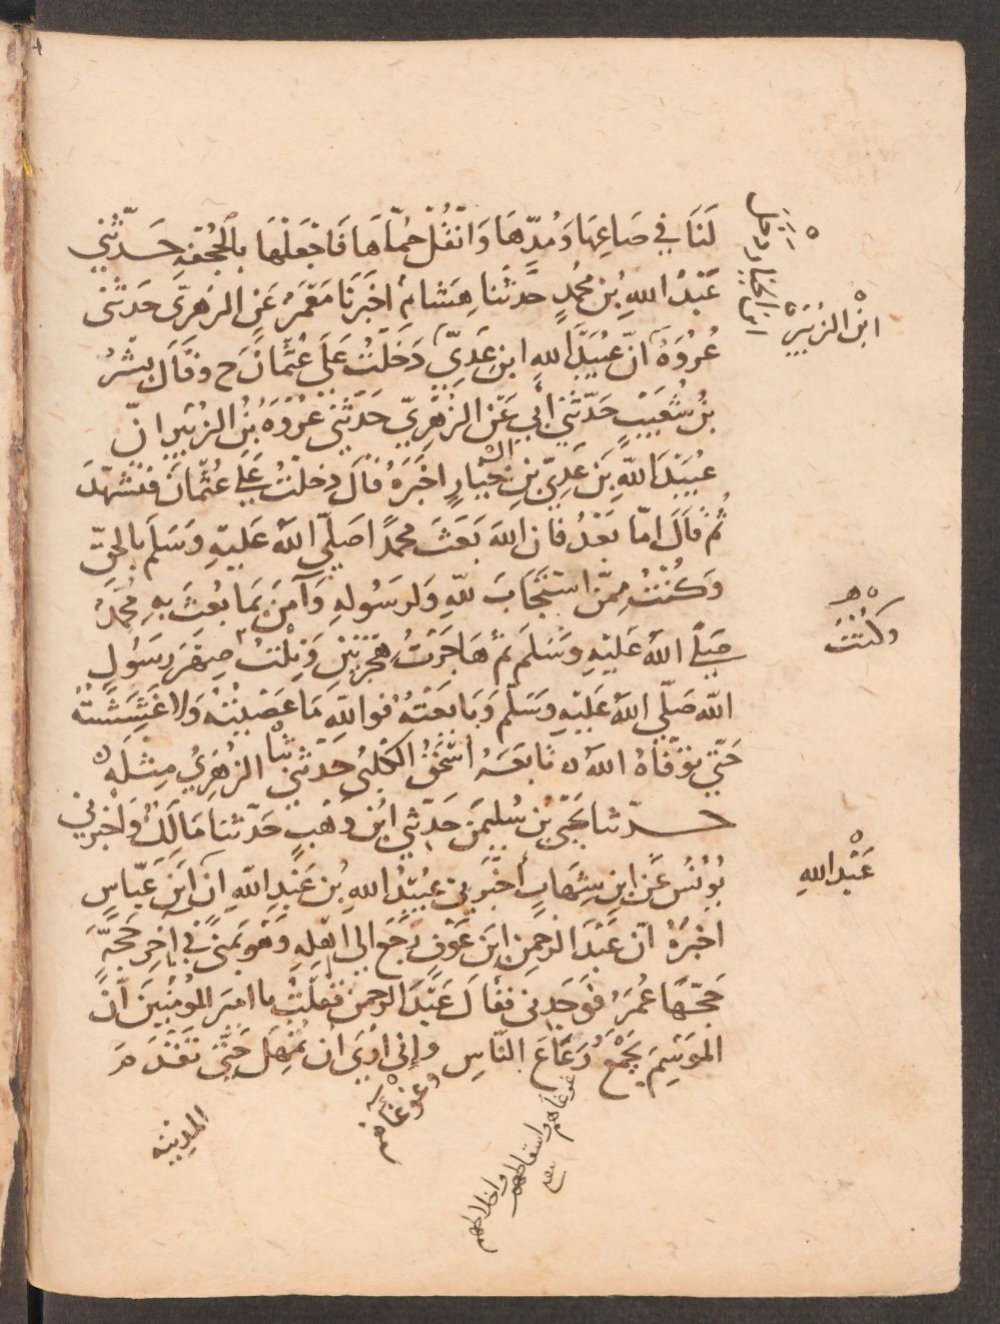 لَنَا في صَاعِهَا وَمُدِّهَا وَانْقُلْ حُمَّاهَا فَاجْعَلْهَا بِالْجُحْفَةِ حَدَّثَنِي
عَبْدُ اللهِ بْنُ مُحَمَّدٍ حَدَّثَنَا هِشَامٌ اخبَرَنَا مَعْمَرٌ عَنِ الزهرِيّ حَدثَنى
عُرْوَةُ انَّ عُبَيْدَ اللهِ ابنَ عَدِيٍّ دَخَلْتُ عَلَى عُثْمَانَ ح وَقَالَ بِشْرُ
بْنُ شُعَيْبٍ حَدّثَنِي أَبِي عَنِ الزُّهْرِيّ حَدّثَنى عُرْوَةُ بْنُ الزُّبَيْرِ انَّ
عُبَيْدَ اللهِ بْنَ عَدِيِّ بْنِ الخِيَارِ اخْبَرَهُ قَالَ دخلتُ عَلى عُثْمَانَ فَتَشَهَّدَ
ثُمَّ قَالَ امّا بَعْدُ فَان اللهَ بَعَثَ محمدًا صَلّى اللهُ عَلَيْهِ وَسَلَّمَ بالحقّ
وَكُنْتُ مِمَّنِ اسْتَجَابَ للهِ وَلرَسُولهِ وَآمَنَ بِمَا بُعِثَ بِهِ مُحَمَّدٌ
صَلى اللهُ عَلَيْهِ وَسَلَّمَ ثم هَاجَرْتُ هِجْرَتَيْنِ وَنِلْتُ صِهْرَ رَسُولِ
اللهِ صَلّى اللهُ عَلَيْهِ وَسَلَّمَ وَبَايَعْتُهُ فَوَاللهِ مَا عَصَيْتُهُ وَلا غَشَشْتُهُ
حَتّى تَوَفَّاهُ اللهُ ه تَابَعَهُ اسْحٰقُ الكَلْبيُّ حَدّثَنِي الزُّهْرِيُّ مِثْلَهُ ه
حدثنا يَحْيَى بْنُ سُلَيْمٰنَ حَدّثَنِي ابْنُ وَهْبٍ حَدّثَنَا مَالِكٌ وَأخْبَرَنِي
يُونُسُ عَنِ ابنِ شِهَابٍ أخْبَرَنِي عُبَيْدُ اللهِ بْنُ عَبْدِ اللهِ انَّ ابْنَ عَبّاسٍ
اخْبَرَهُ انّ عَبْدَ الرحمنِ ابنَ عَوْفٍ رَجَعَ الى اهْلِهِ وَهْوَ بِمِنًى في آخِرِ حَجَّةٍ
حَجّهَا عُمَرُ فَوَجَدَنِى فَقَالَ عَبْدُ الرحمنِ فَقُلْتُ يا اميرَ المُؤْمِنِينَ انَّ
المَوْسِمَ يَجْمَعُ رَعَاعَ النّاسِ وَإنى أرَى ان تُمْهِلَ حَتّى تَقْدَمَ
المدينه
وَغَوْغَاءَهُم
غوغاهم واسقاطهم واخلاطهم
ابْنُ الزُبَيْرِ
ه
وكُنْتُ
عَبْد الله